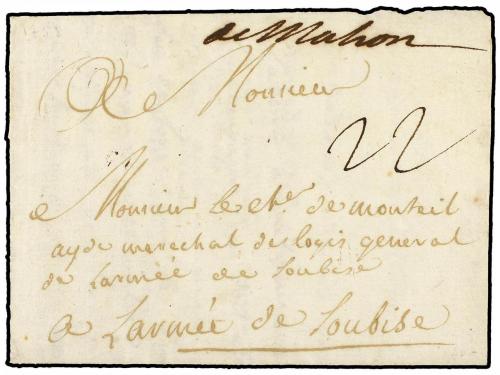 de Mahon
A Monsieur
22
a Monsieur le cher de monteil
ayde marechal des logis general
de Larmée de Soubise
a Larmée de Soubise